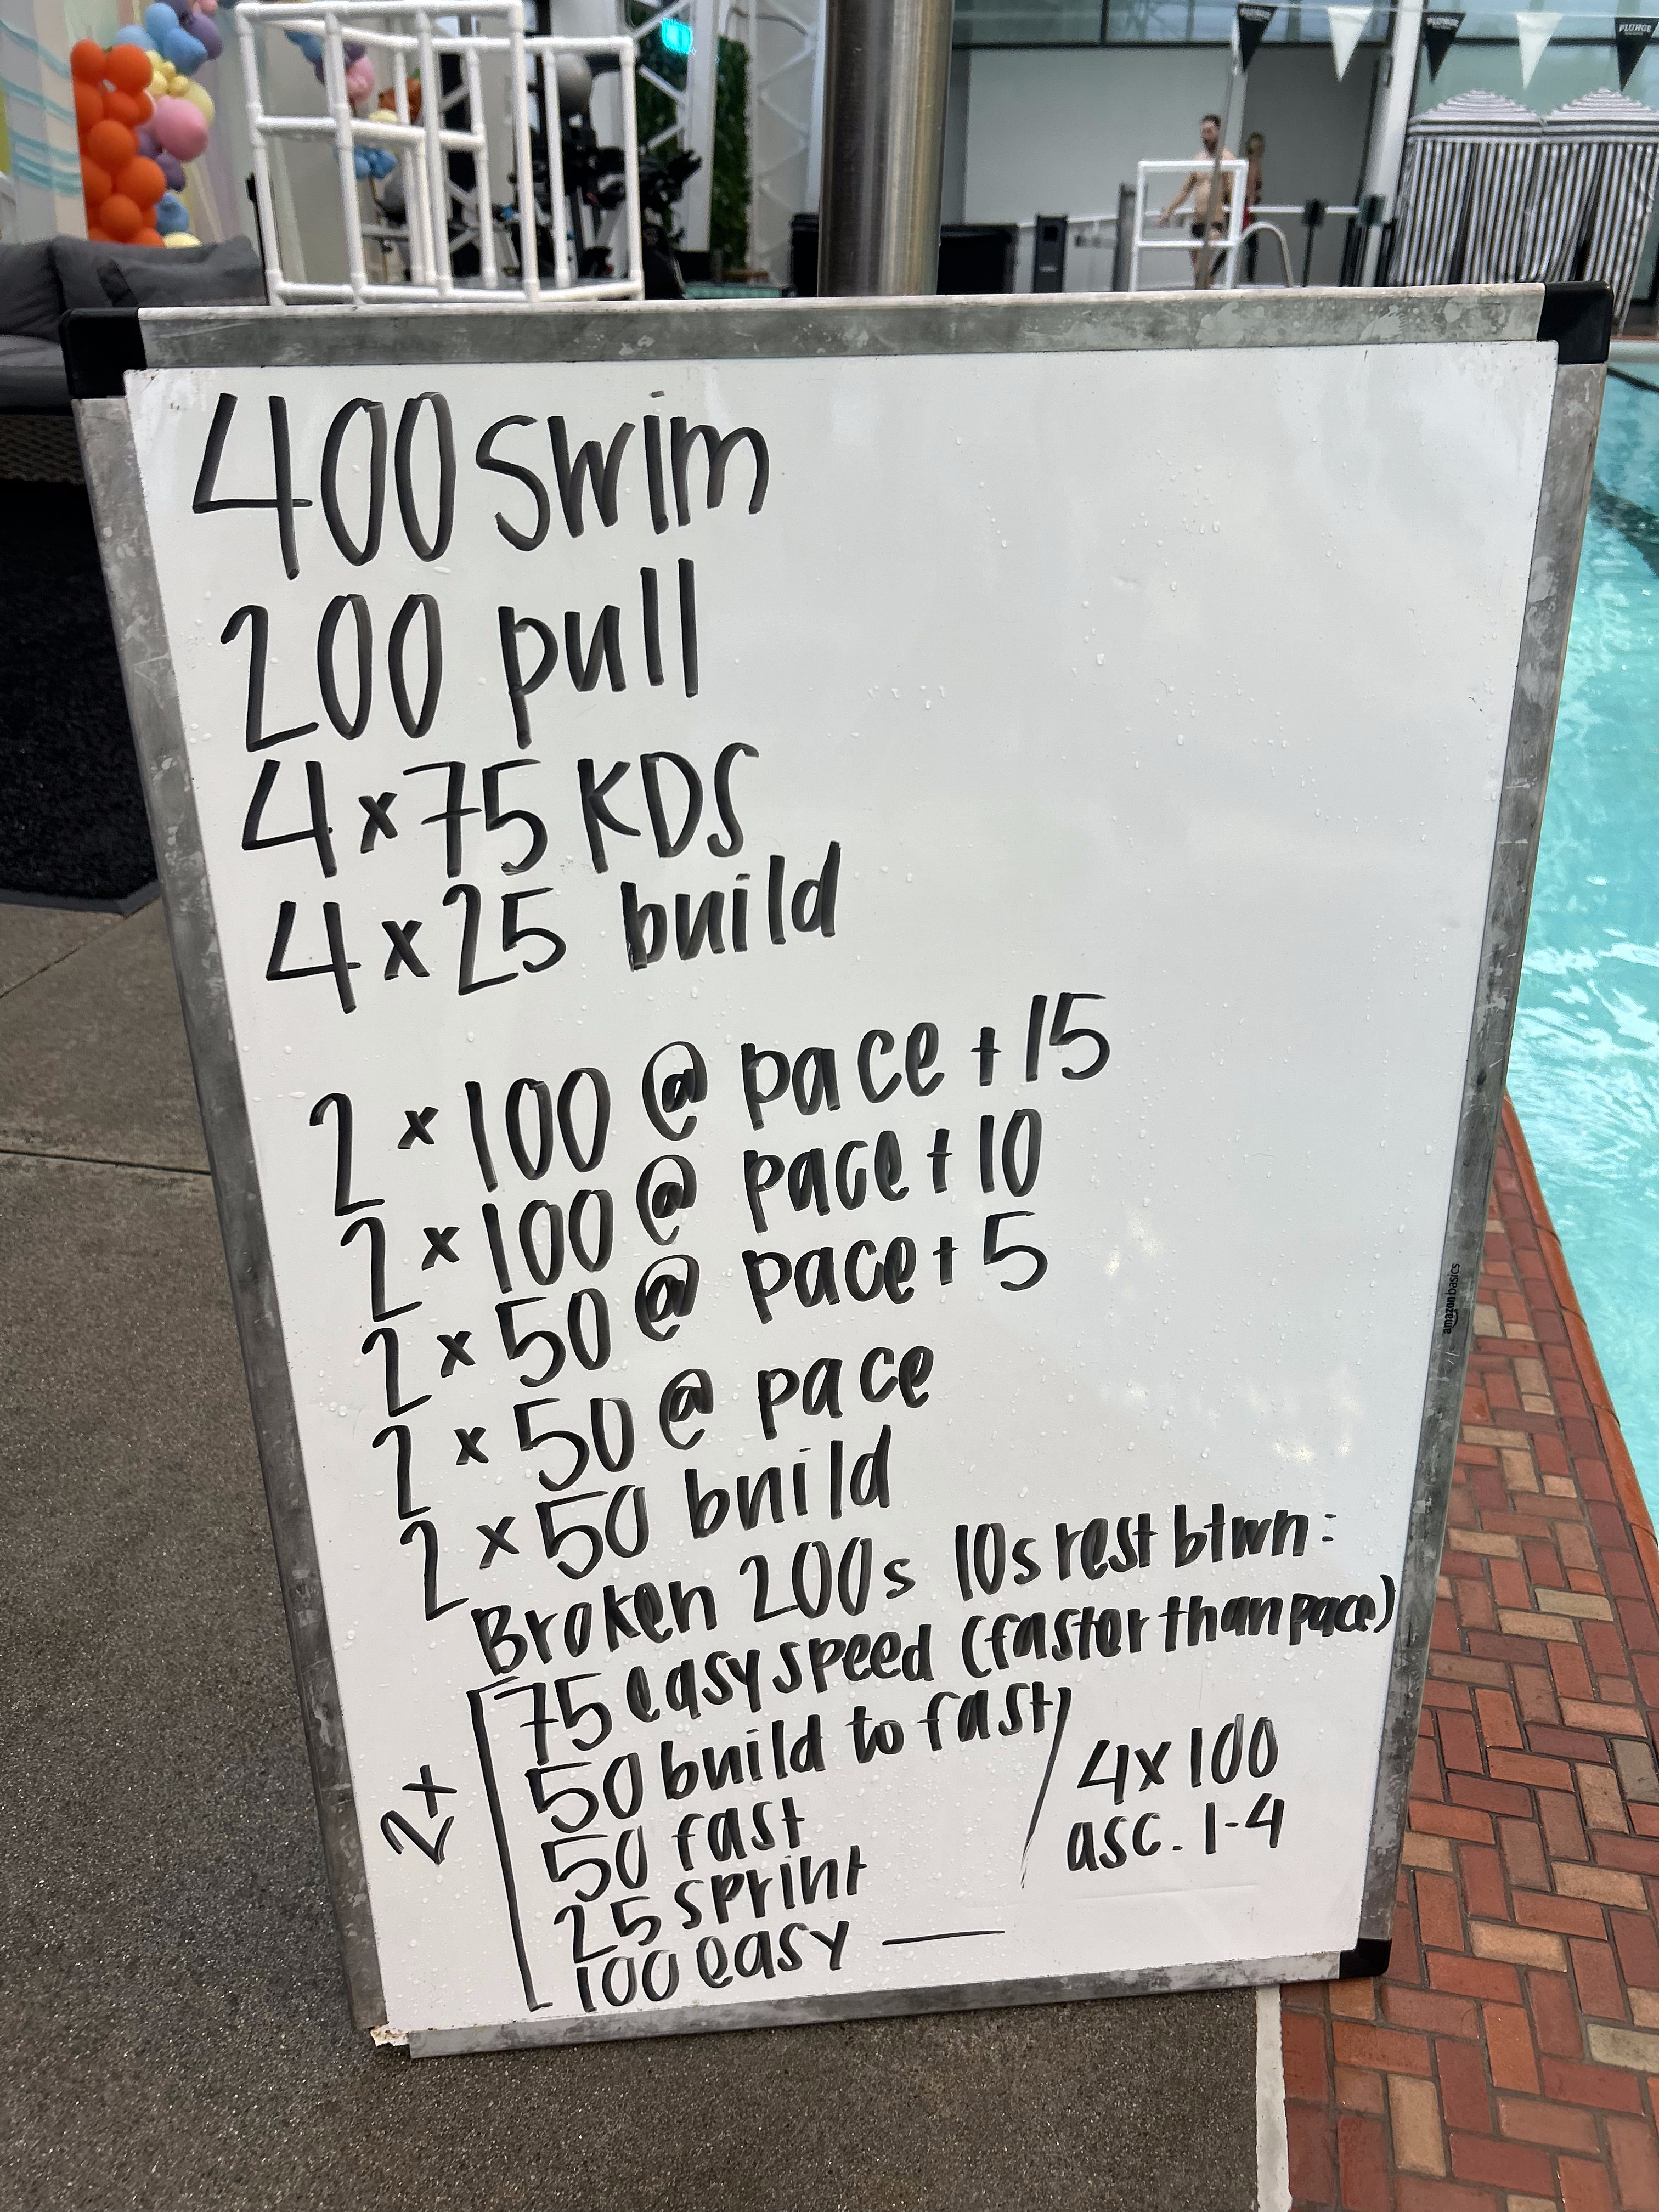 PLUNGE
PLUNGE
PLUNGE
400 swim
200 pull
4x75 KDS
4x25 build
2x100 @ pace +15
2x100 @ pace +10
2x50 @ pace + 5
2x50 @ pace
2x50 build
Broken 200s 10s rest btwn:
2x
75 easy speed (faster than pace)
50 build to fast
50 fast
25 sprint
100 easy —
4x100
asc. 1-4
amazon basics